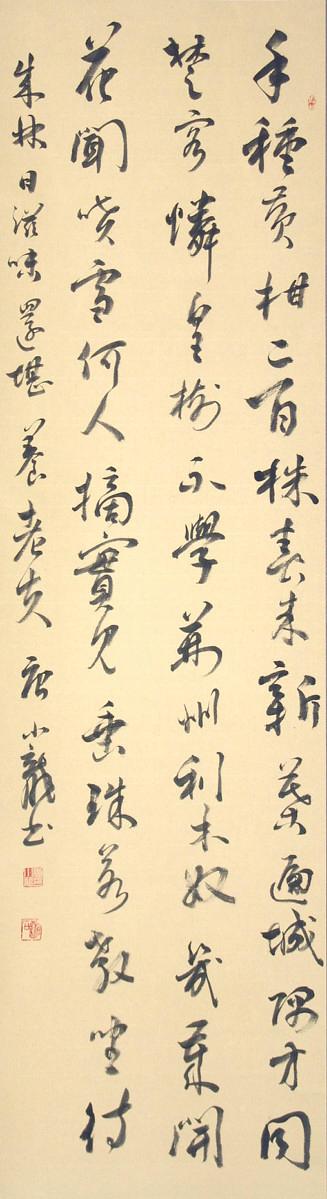 手種黃柑二百株春來新葉遍城隅方同
楚客憐皇樹不學荊州利木奴幾歲開
花聞噴雪何人摘實見垂珠若教坐待
成林日滋味還堪養老夫 唐小龍書